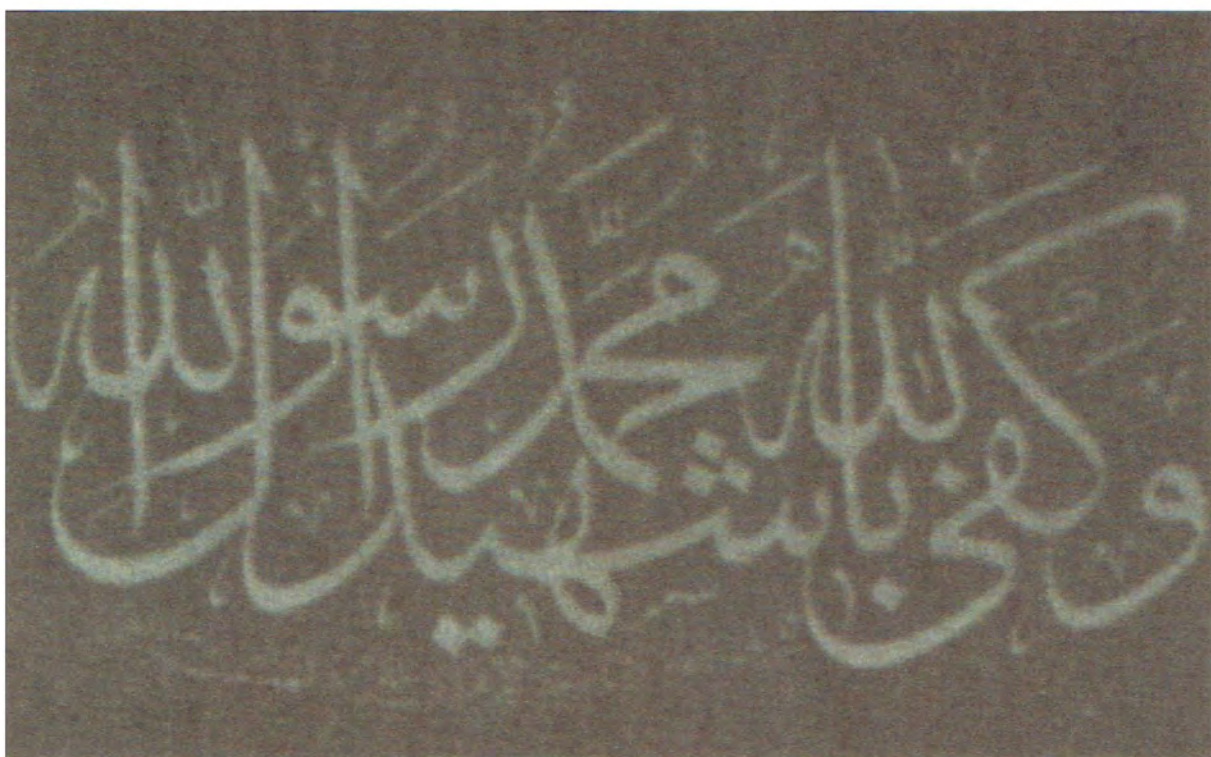 وَكَفَىٰ بِاللّٰهِ شَهِيدًا مُحَمَّدٌ رَسُولُ اللّٰهِ